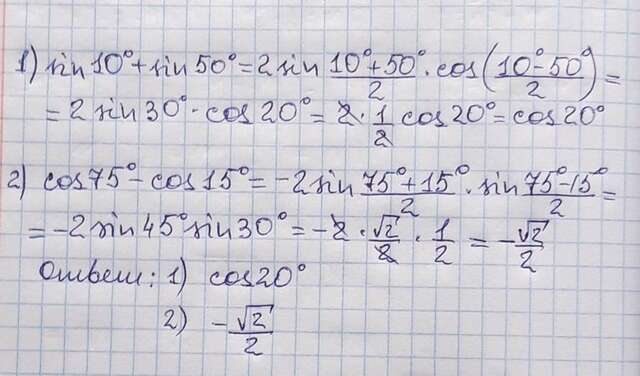 1) sin10°+sin50°=2sin (10°+50°)/2 · cos((10°-50°)/2)=
=2sin30°·cos20°=2·1/2 cos20°=cos20°
2) cos75°-cos15°=-2sin (75°+15°)/2 · sin (75°-15°)/2=
=-2sin45°sin30°=-2·√2/2·1/2=-√2/2
Ответ: 1) cos20°
2) -√2/2